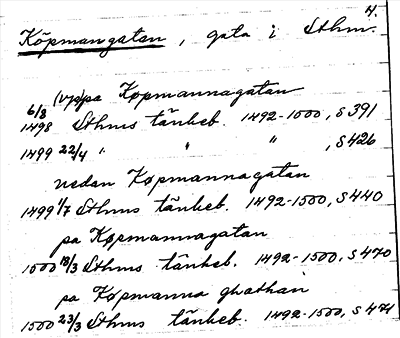 4.
Köpmangatan, gata i Sthm.
(vpo)pa Kopmannagatan
6/8 1498 Sthms tänkeb. 1492-1500, S 391
1499 22/4 " " " , S 426
nedan Køpmannagatan
1499 1/7 Sthms tänkeb. 1492-1500, S 440
pa Køpmannagatan
1500 18/3 Sthms tänkeb. 1492-1500, S 470
pa Køpmanna ghathan
1500 23/3 Sthms tänkeb. 1492-1500, S 471